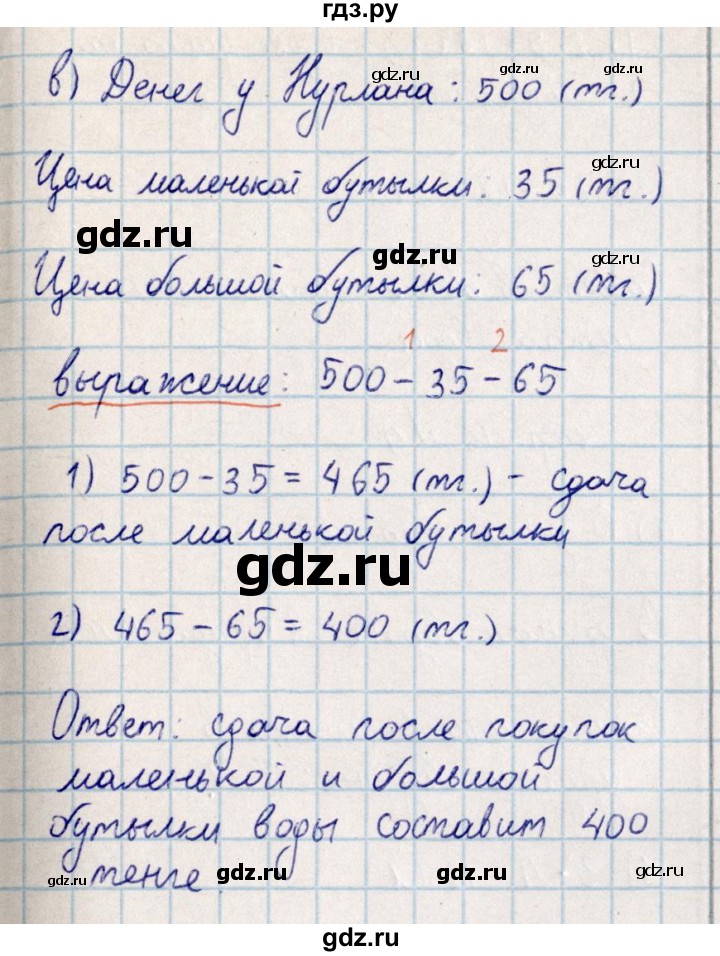 гдз.ру
в) Денег у Нурлана: 500 (тг.)
Цена маленькой бутылки: 35 (тг.)
Цена большой бутылки: 65 (тг.)
1 2
выражение: 500 - 35 - 65
1) 500 - 35 = 465 (тг.) - сдача
после маленькой бутылки
2) 465 - 65 = 400 (тг.)
Ответ: сдача после покупок
маленькой и большой
бутылки воды составит 400
тенге.
gdz.ru
gdz.ru
gdz.ru
gdz.ru
gdz.ru
gdz.ru
gdz.ru
gdz.ru
gdz.ru
gdz.ru
gdz.ru
gdz.ru
gdz.ru
gdz.ru